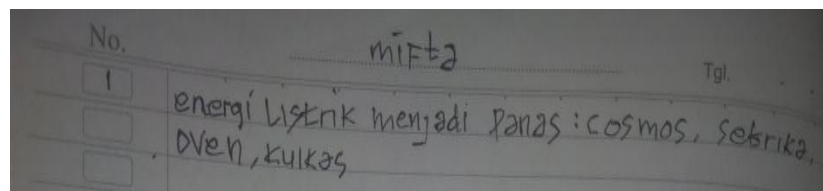 No.
mifta
Tgl.
1
energi Listrik menjadi panas : cosmos, setrika,
oven, kulkas